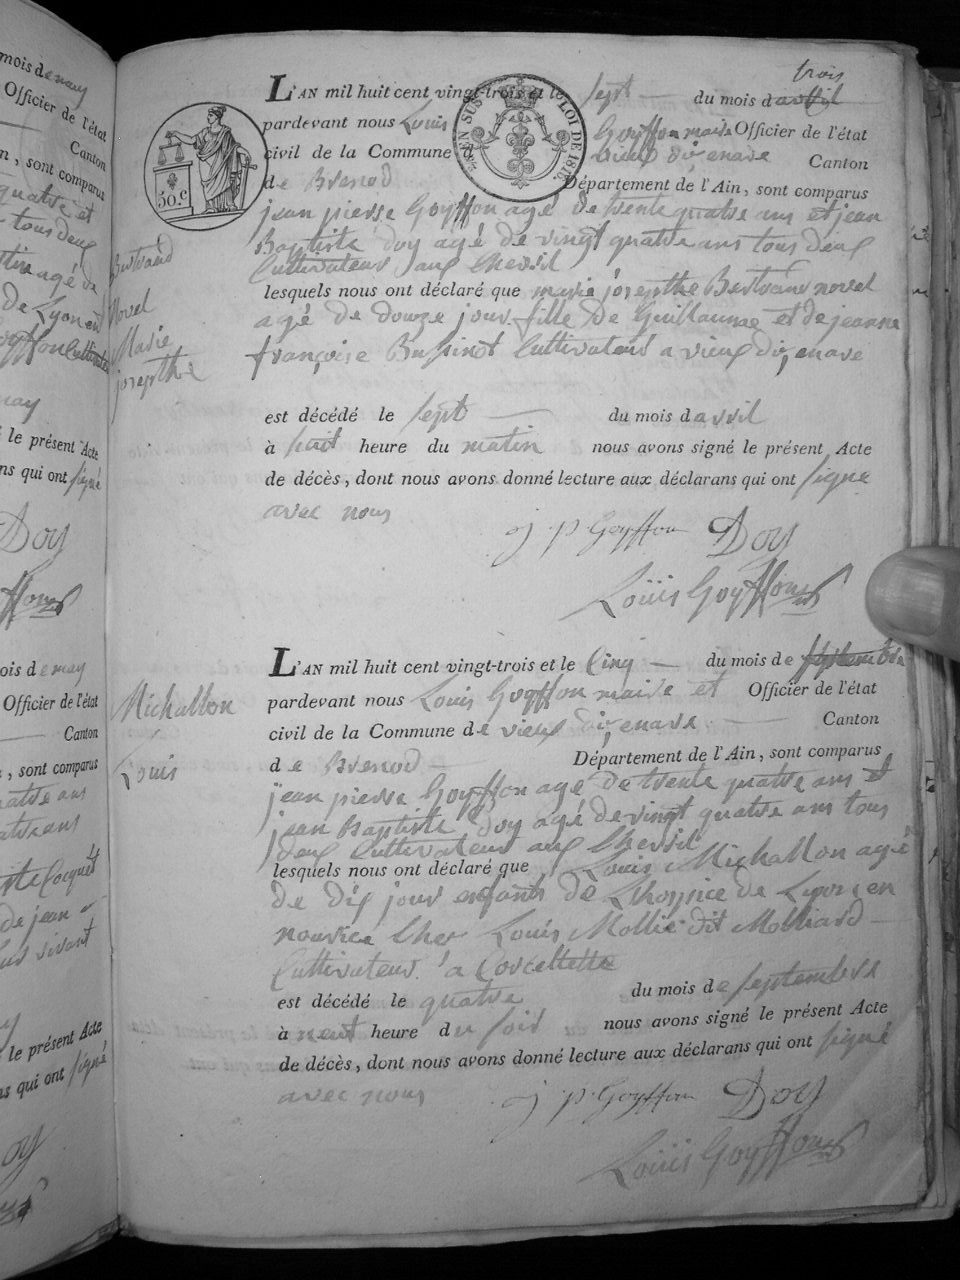 trois
L'AN mil huit cent vingt-trois et le sept du mois d avril
pardevant nous Louis Goyffon maire Officier de l'état
civil de la Commune d vieux dizenave Canton
de Brenod Département de l'Ain, sont comparus
jean pierre Goyffon agé de trente quatre ans et jean
Baptiste Doy agé de vingt quatre ans tous deux
Cultivateur aux
lesquels nous ont déclaré que marie josepthe Bertrand novel
agé de douze jour fille de Guillaume et de jeanne
françoise Cultivateur a vieux dizenave
est décédé le sept du mois d avril
à huit heure du matin nous avons signé le présent Acte
de décès, dont nous avons donné lecture aux déclarans qui ont signé
avec nous
j p Goyffon Doy
Louis Goyffon
Bertrand
Novel
Marie
josepthe
50.c
EN SUS
LOI DE 1816
L'AN mil huit cent vingt-trois et le Cinq du mois de septembre
pardevant nous Louis Goyffon maire et Officier de l'état
civil de la Commune de vieux dizenave Canton
de Brenod Département de l'Ain, sont comparus
jean pierre Goyffon agé de trente quatre ans et
jean Baptiste Doy agé de vingt quatre ans tous
deux Cultivateur aux
lesquels nous ont déclaré que Louis Michallon agé
de dix jour enfant de Lhospice de Lyon en
nourice Cher Louis Mollie dit Molliard
Cultivateur a Corcellette
est décédé le quatre du mois de septembre
à neuf heure du soir nous avons signé le présent Acte
de décès, dont nous avons donné lecture aux déclarans qui ont signé
avec nous
j p Goyffon Doy
Louis Goyffon
Michallon
Louis
mois de may
Officier de l'état
Canton
, sont comparus
quatre et
tous deux
agé de
de Lyon en
may
le présent Acte
ns qui ont signé
Doy
ois de may
Officier de l'état
Canton
, sont comparus
quatre ans
Cocquet
de jean
vivant
le présent Acte
s qui ont signé